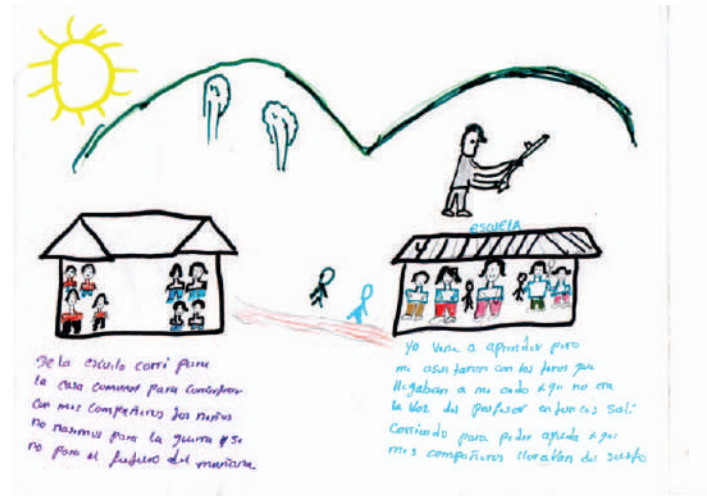 escuela
De la escuela corri para
la casa comunal para
con mis compañeros los niños
no nasemos para la guerra y si
no para el futuro del mañana.
Yo venia a aprender pero
me asustaron con los tiros que
llegaban a mi oido xque no era
la voz del profesor entonces sali
Corriendo para pedir ayuda xque
mis compañeros lloraban del susto